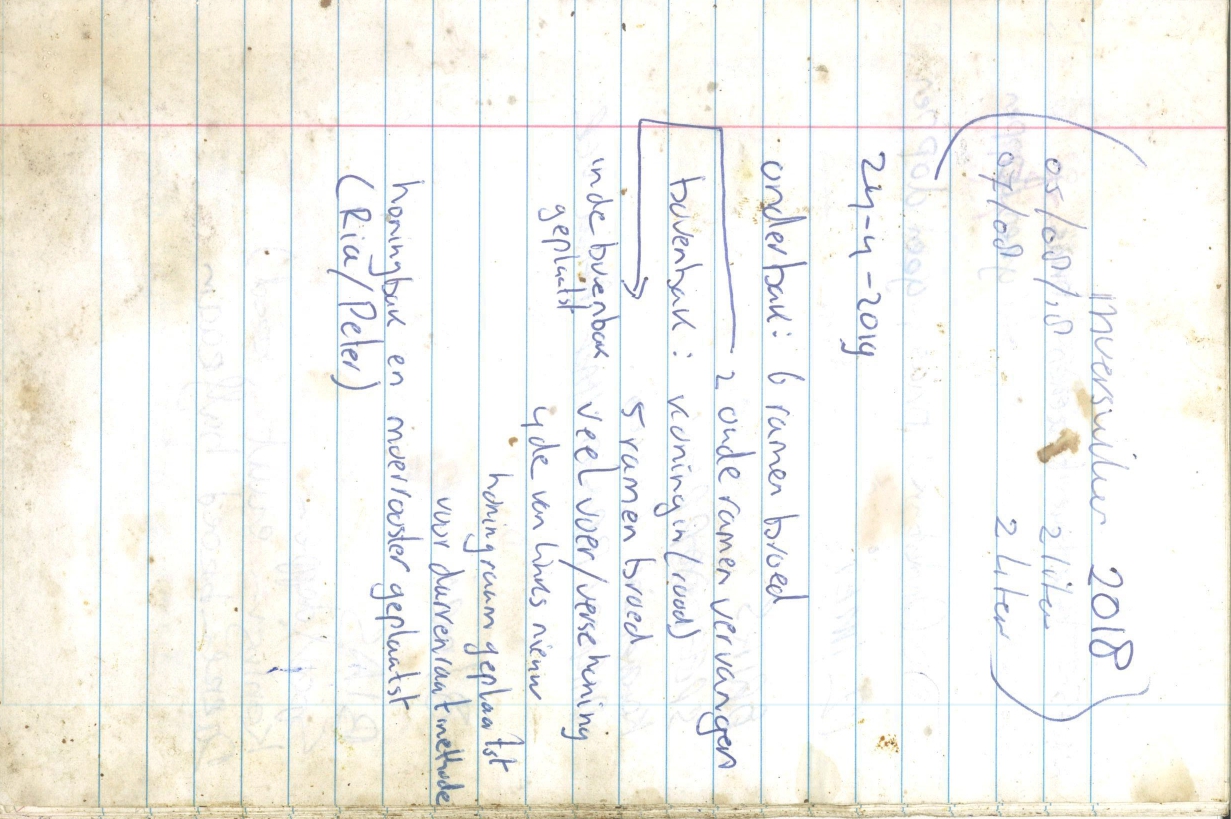 Invertsuiker 2018
( 05/08/18 2 liter
07/08 2 Liter )
24-4-2019
onderbak: 6 ramen broed
2 oude ramen vervangen
bovenbak: koningin (rood)
5 ramen broed
in de bovenbak geplaatst
veel voer/verse honing
4de van links nieuw
honingraam geplaatst
voor darrenraatmethode
honingbak en moerrooster geplaatst
(Ria/Peter)